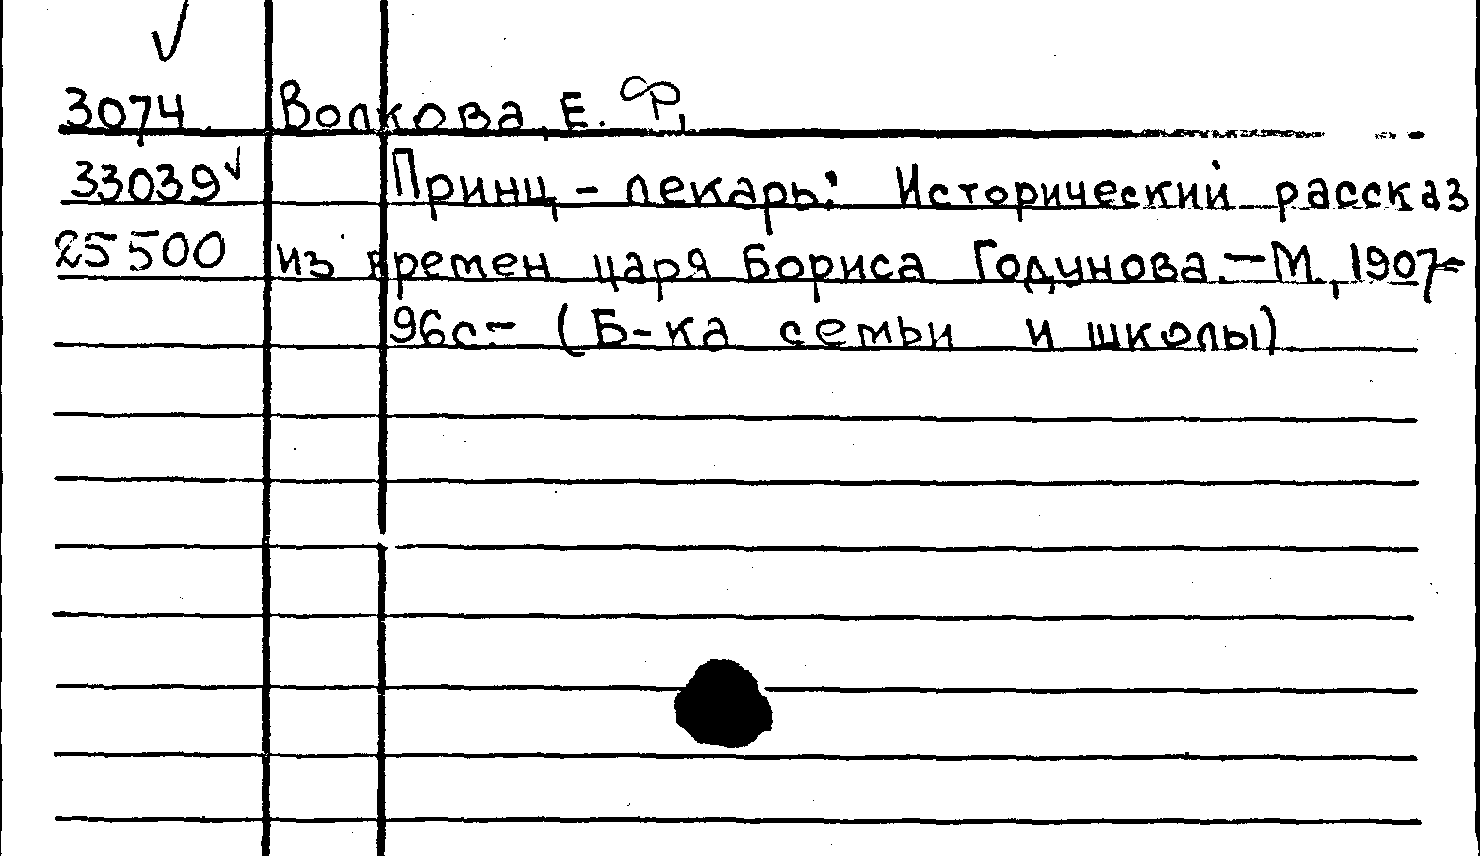 3074. Волкова, Е. Ф.
33039 Принц-лекарь: Исторический рассказ
25500 из времен царя Бориса Годунова.-М, 1907-
96с.- (Б-ка семьи и школы)